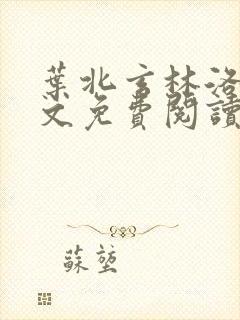 葉北玄林洛
文免費閱讀
蘇堃